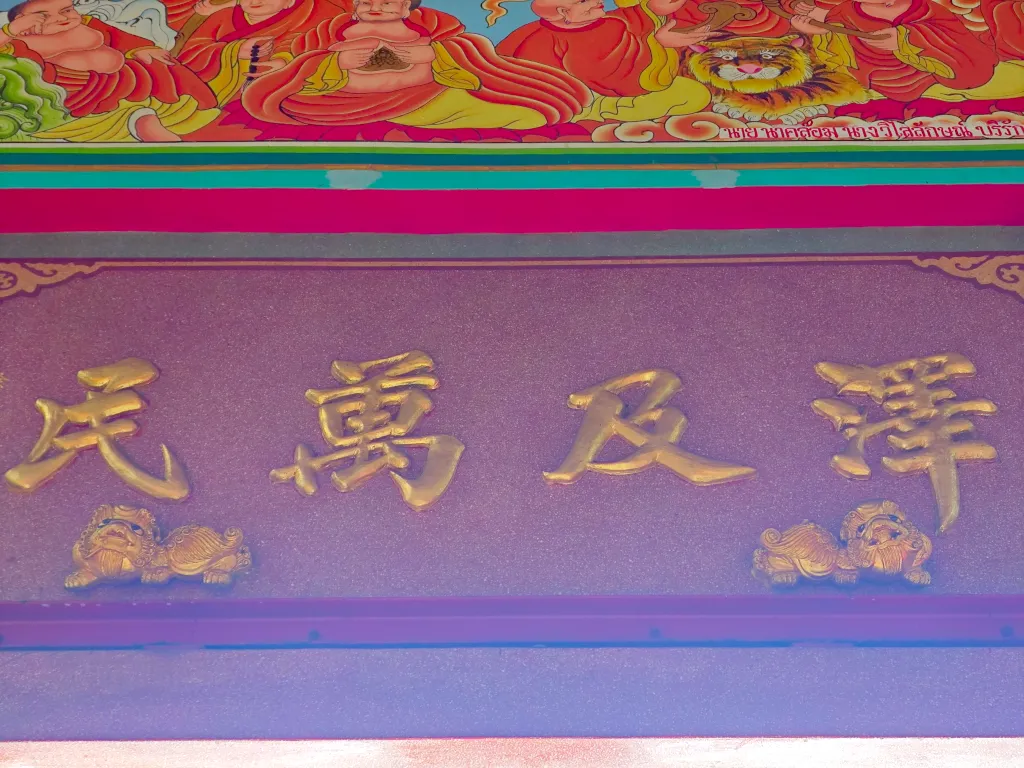 นาย นาคล้อม นางวิไลลักษณ์ ปริรัก
澤及萬民